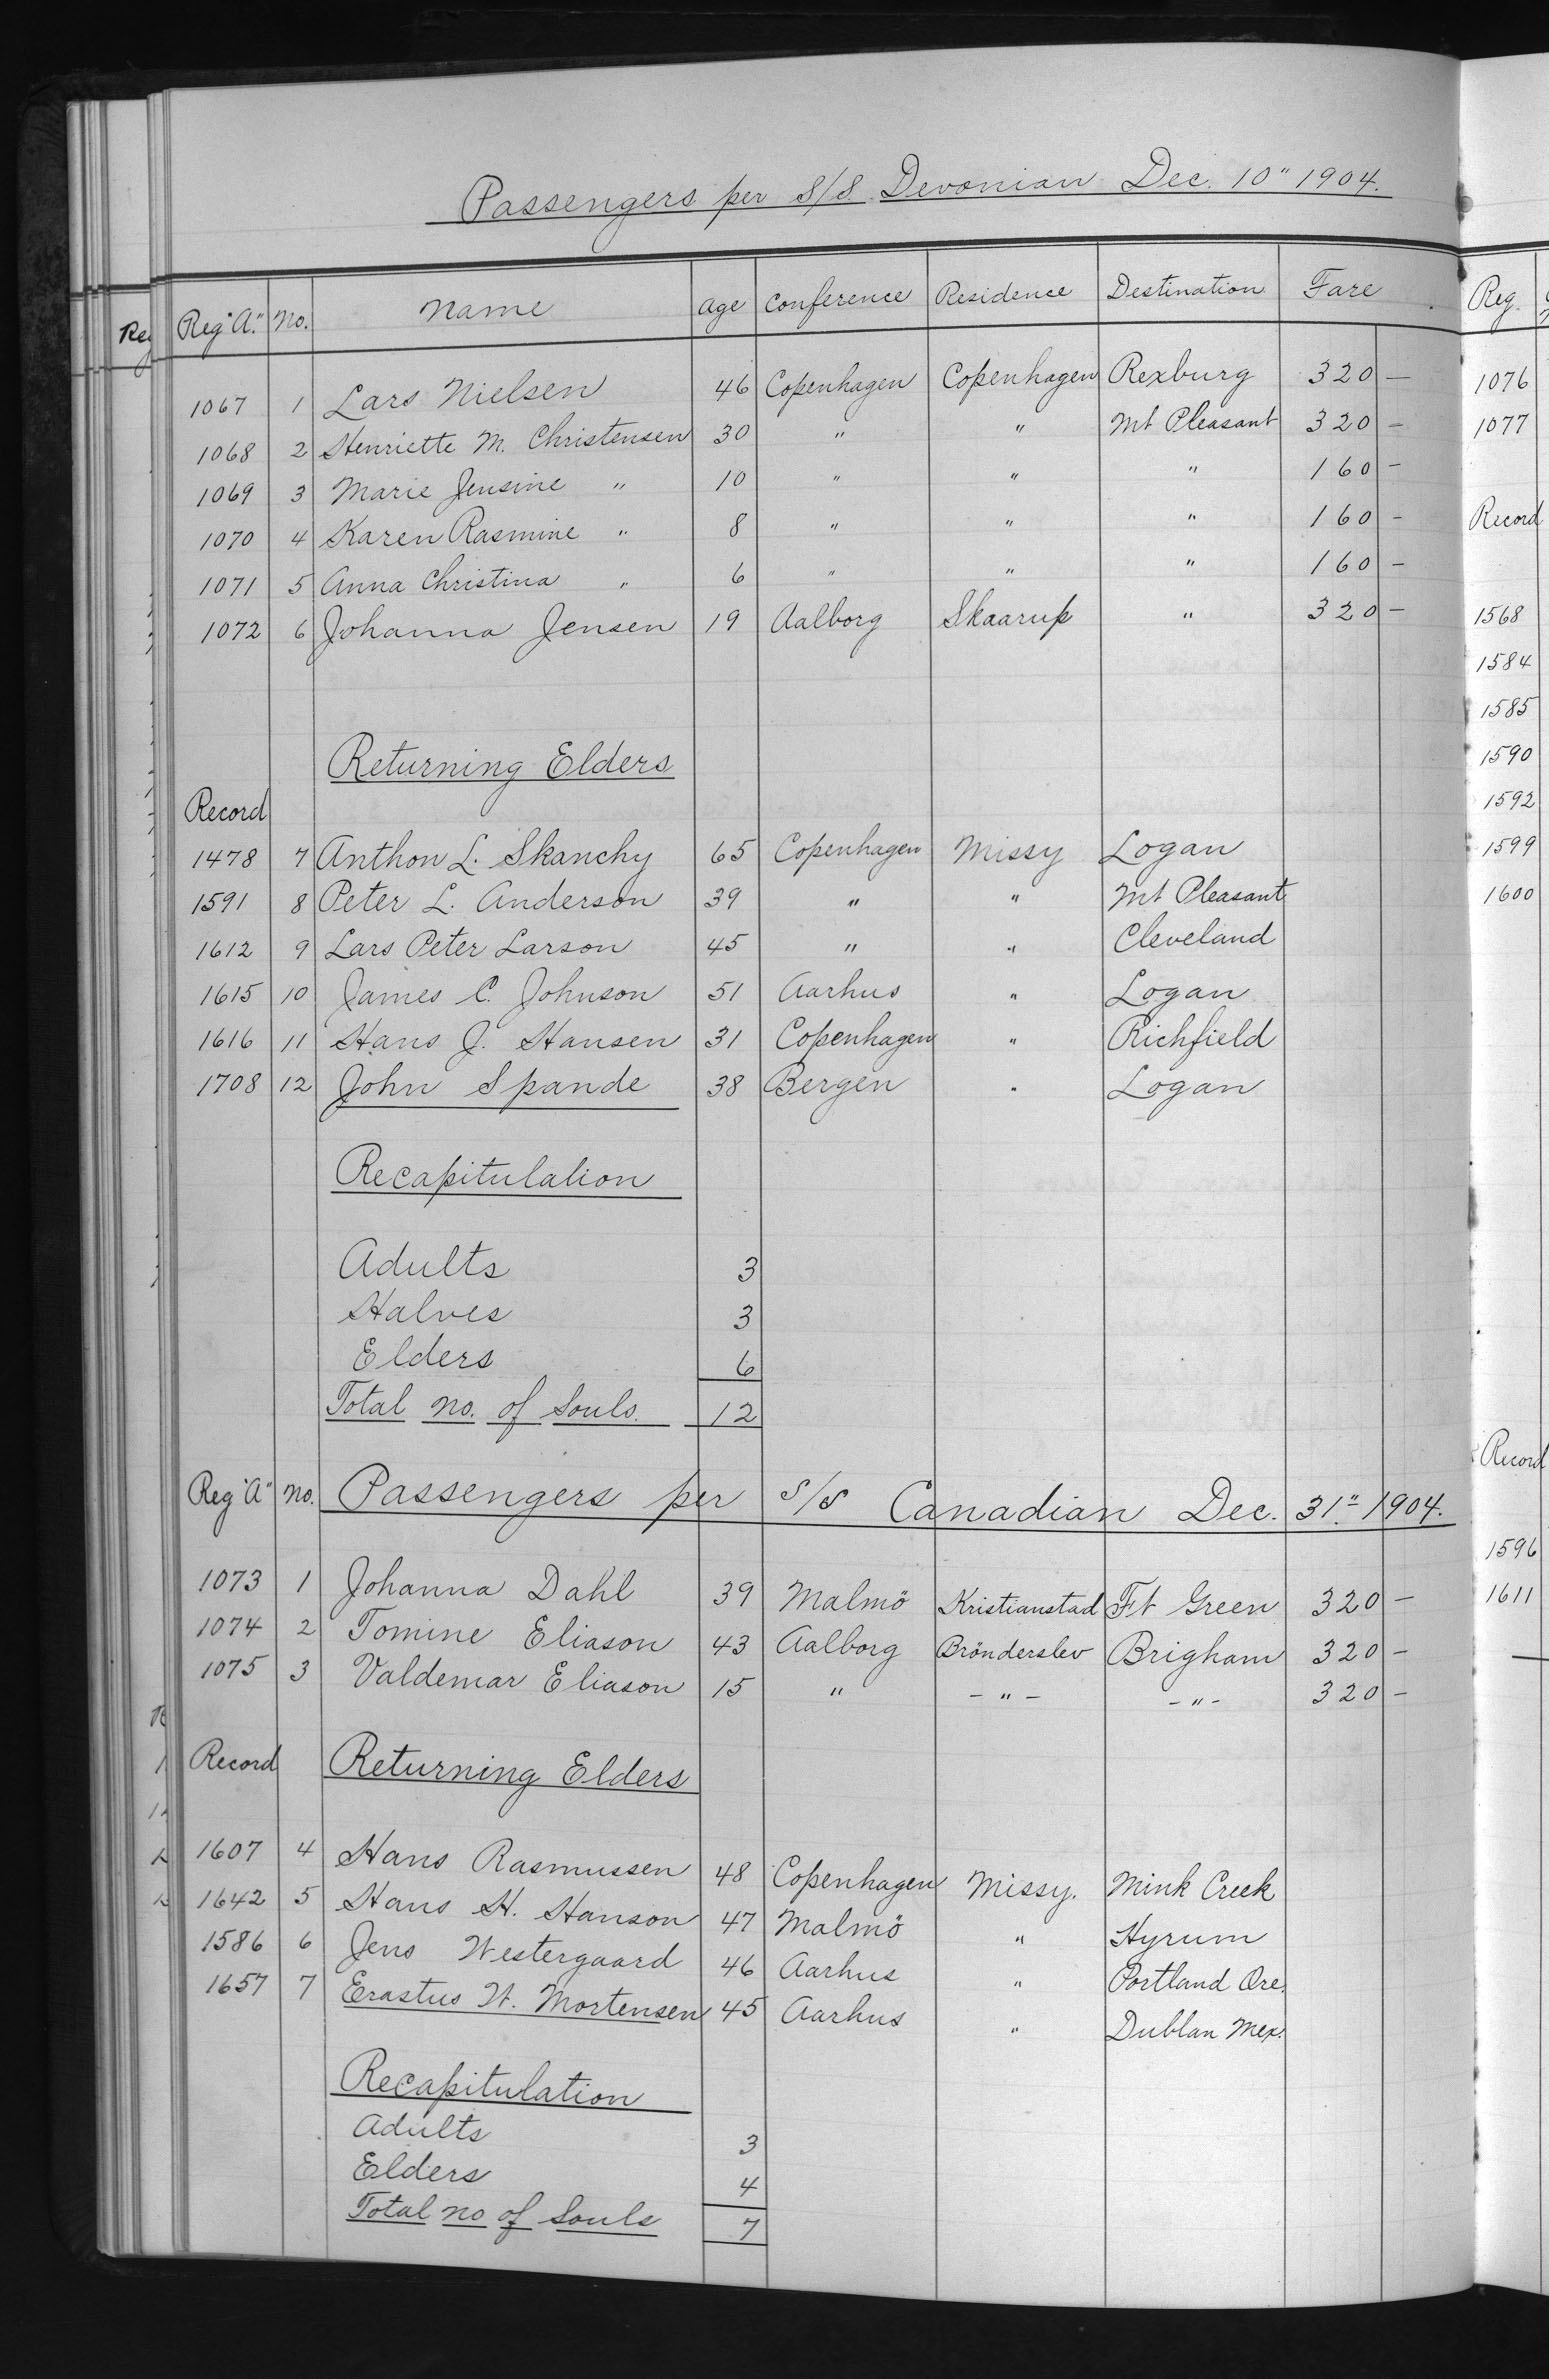 Passengers per S/S. Devonian Dec. 10" 1904.
Reg "A." No. Name Age Conference Residence Destination Fare
1067 1 Lars Nielsen 46 Copenhagen Copenhagen Rexburg 320 —
1068 2 Henriette M. Christensen 30 " " Mt Pleasant 320 —
1069 3 Marie Jensine " 10 " " " 160 —
1070 4 Karen Rasmine " 8 " " " 160 —
1071 5 Anna Christina " 6 " " " 160 —
1072 6 Johanna Jensen 19 Aalborg Skaarup " 320 —
Returning Elders
Record
1478 7 Anthon L. Skanchy 65 Copenhagen Missy Logan
1591 8 Peter L. Anderson 39 " " Mt Pleasant
1612 9 Lars Peter Larson 45 " " Cleveland
1615 10 James C. Johnson 51 Aarhus " Logan
1616 11 Hans J. Hansen 31 Copenhagen " Richfield
1708 12 John Spande 38 Bergen " Logan
Recapitulation
Adults 3
Halves 3
Elders 6
Total no. of Souls. 12
Reg "A" No. Passengers per S/S Canadian Dec. 31" 1904.
1073 1 Johanna Dahl 39 Malmö Kristianstad Ft Green 320 —
1074 2 Tomine Eliason 43 Aalborg Brönderslev Brigham 320 —
1075 3 Valdemar Eliason 15 " — " — — " — 320 —
Record Returning Elders
1607 4 Hans Rasmussen 48 Copenhagen Missy. Mink Creek
1642 5 Hans H. Hanson 47 Malmö " Hyrum
1586 6 Jens Westergaard 46 Aarhus " Portland Ore.
1657 7 Erastus W. Mortensen 45 Aarhus " Dublan Mex.
Recapitulation
Adults 3
Elders 4
Total no of Souls 7
Reg
Reg.
1076
1077
Record
1568
1584
1585
1590
1592
1599
1600
Record
1596
1611